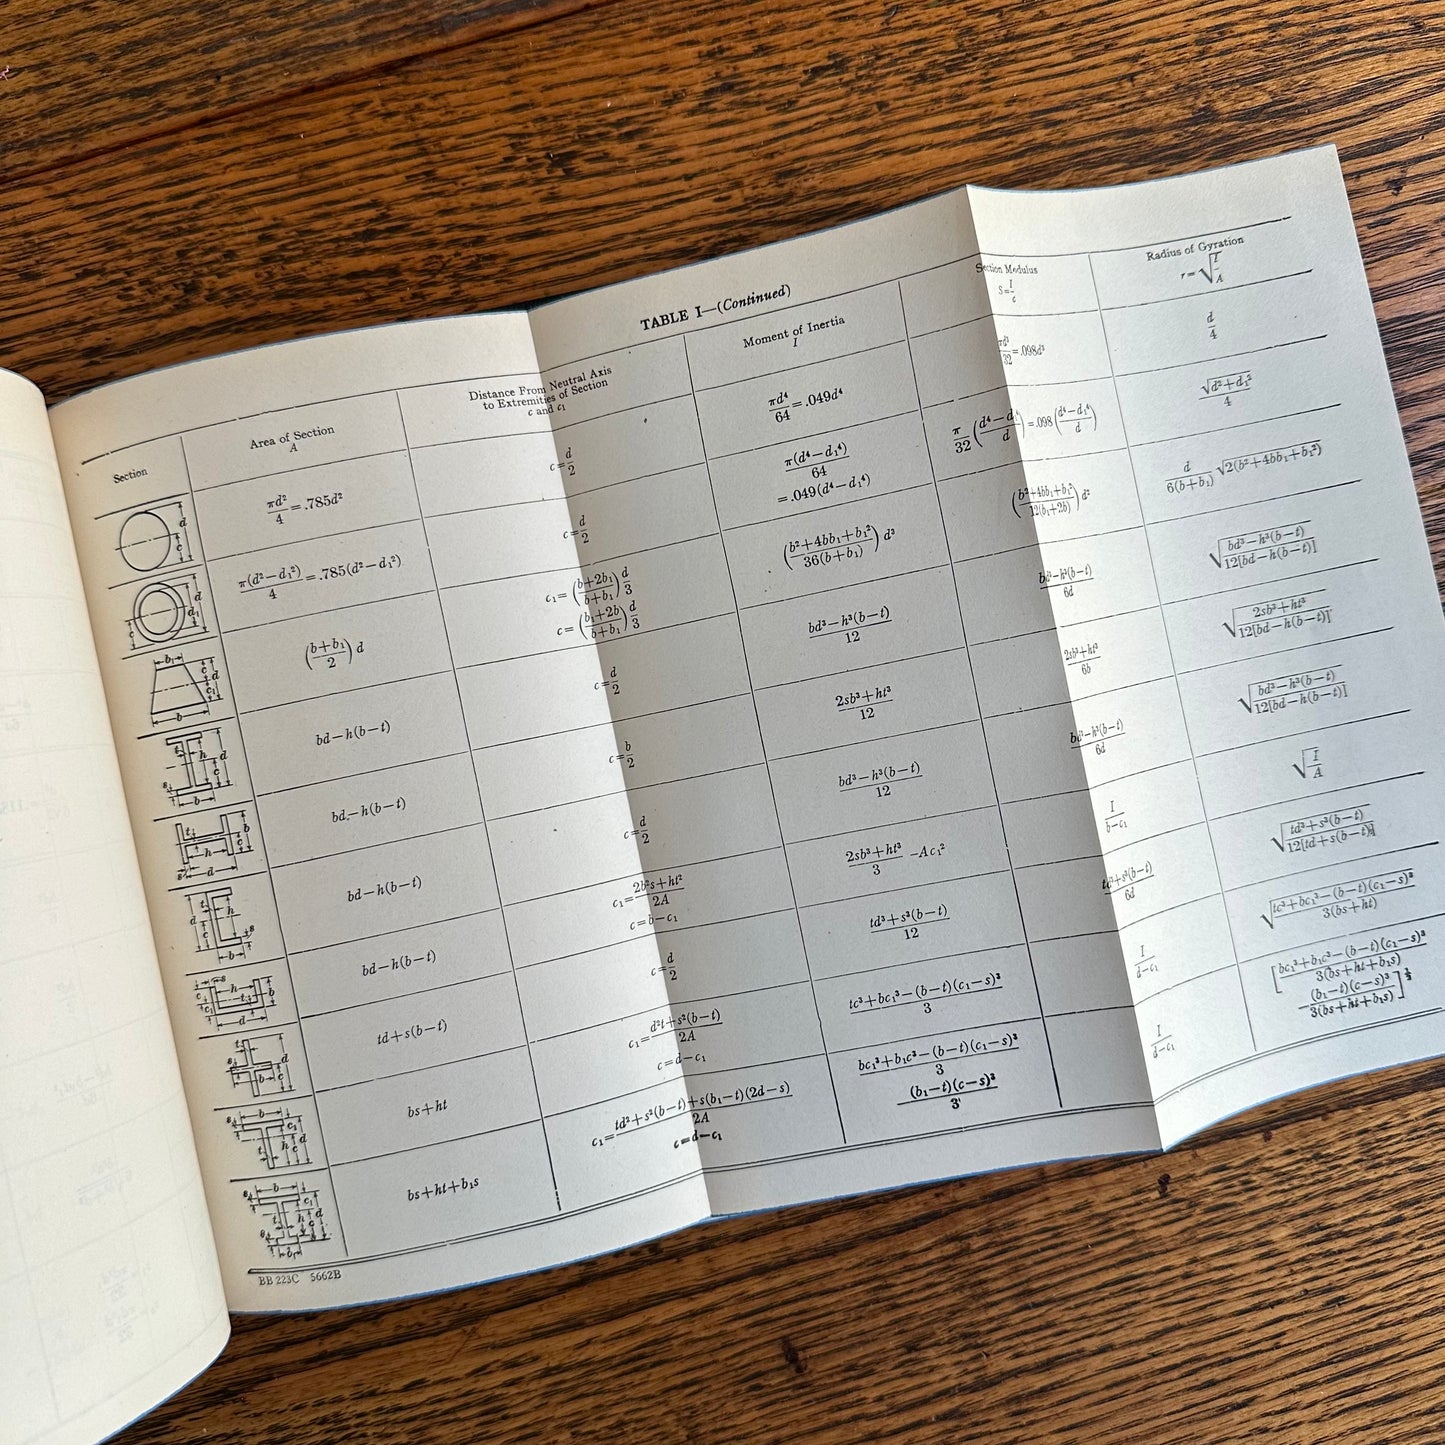 TABLE I—(Continued)
Section
Area of Section
A
Distance From Neutral Axis
to Extremities of Section
c and c₁
Moment of Inertia
I
Section Modulus
S=I/c
Radius of Gyration
r=√(I/A)
d
c
πd²/4=.785d²
c=d/2
πd⁴/64=.049d⁴
πd³/32=.098d³
d/4
d
d₁
c
π(d²−d₁²)/4=.785(d²−d₁²)
c=d/2
π(d⁴−d₁⁴)/64
=.049(d⁴−d₁⁴)
π/32((d⁴−d₁⁴)/d)=.098((d⁴−d₁⁴)/d)
√(d²+d₁²)/4
b₁
c
d
c₁
b
((b+b₁)/2)d
c₁=((b+2b₁)/(b+b₁))d/3
c=((b₁+2b)/(b+b₁))d/3
((b²+4bb₁+b₁²)/36(b+b₁))d³
((b²+4bb₁+b₁²)/12(b₁+2b))d²
d/6(b+b₁)√2(b²+4bb₁+b₁²)
t
h
d
c
s
b
bd−h(b−t)
c=d/2
(bd³−h³(b−t))/12
(bd³−h³(b−t))/6d
√((bd³−h³(b−t))/12[bd−h(b−t)])
t
b
c
h
s
d
bd−h(b−t)
c=b/2
(2sb³+ht³)/12
(2sb³+ht³)/6b
√((2sb³+ht³)/12[bd−h(b−t)])
t
d
h
c
s
b
bd−h(b−t)
c=d/2
(bd³−h³(b−t))/12
(bd³−h³(b−t))/6d
√((bd³−h³(b−t))/12[bd−h(b−t)])
s
c
h
t
b
c₁
d
bd−h(b−t)
c₁=(2b²s+ht²)/2A
c=b−c₁
(2sb³+ht³)/3 −Ac₁²
I/(b−c₁)
√(I/A)
t
s
d
b
c
td+s(b−t)
c=d/2
(td³+s³(b−t))/12
(td³+s³(b−t))/6d
√((td³+s³(b−t))/12[td+s(b−t)])
b
s
c₁
t
h
c
d
bs+ht
c₁=(d²t+s²(b−t))/2A
c=d−c₁
(tc³+bc₁³−(b−t)(c₁−s)³)/3
I/(d−c₁)
√((tc³+bc₁³−(b−t)(c₁−s)³)/3(bs+ht))
b
s
c₁
t
h
d
c
s
b₁
bs+ht+b₁s
c₁=(td²+s²(b−t)+s(b₁−t)(2d−s))/2A
c=d−c₁
(bc₁³+b₁c³−(b−t)(c₁−s)³)/3
(b₁−t)(c−s)³/3
I/(d−c₁)
[(bc₁³+b₁c³−(b−t)(c₁−s)³)/3(bs+ht+b₁s)
−(b₁−t)(c−s)³/3(bs+ht+b₁s)]^½
BB 223C 5662B